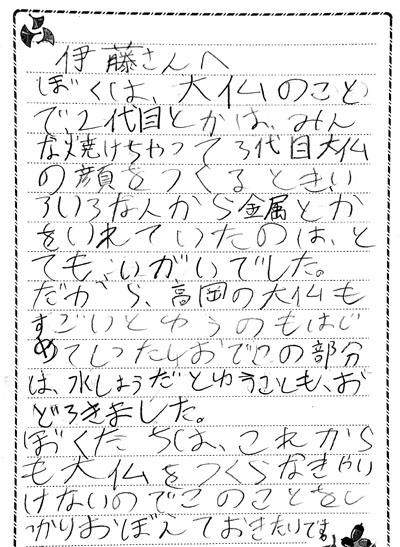 伊藤さんへ
ぼくは、大仏のこと
で、2代目とかは、みん
な焼けちゃって3代目大仏
の顔をつくるとき、い
ろいろな人から金属とか
をいれていたのは、と
ても、いがいでした。
だから、高岡の大仏も
すごいとゆうのもはじ
めてしったしおでこの部分
は、水しょうだとゆうことも、お
どろきました。
ぼくたちは、これから
も大仏をつくらなきゃい
けないのでこのことをし
っかりおぼえておきたいです。